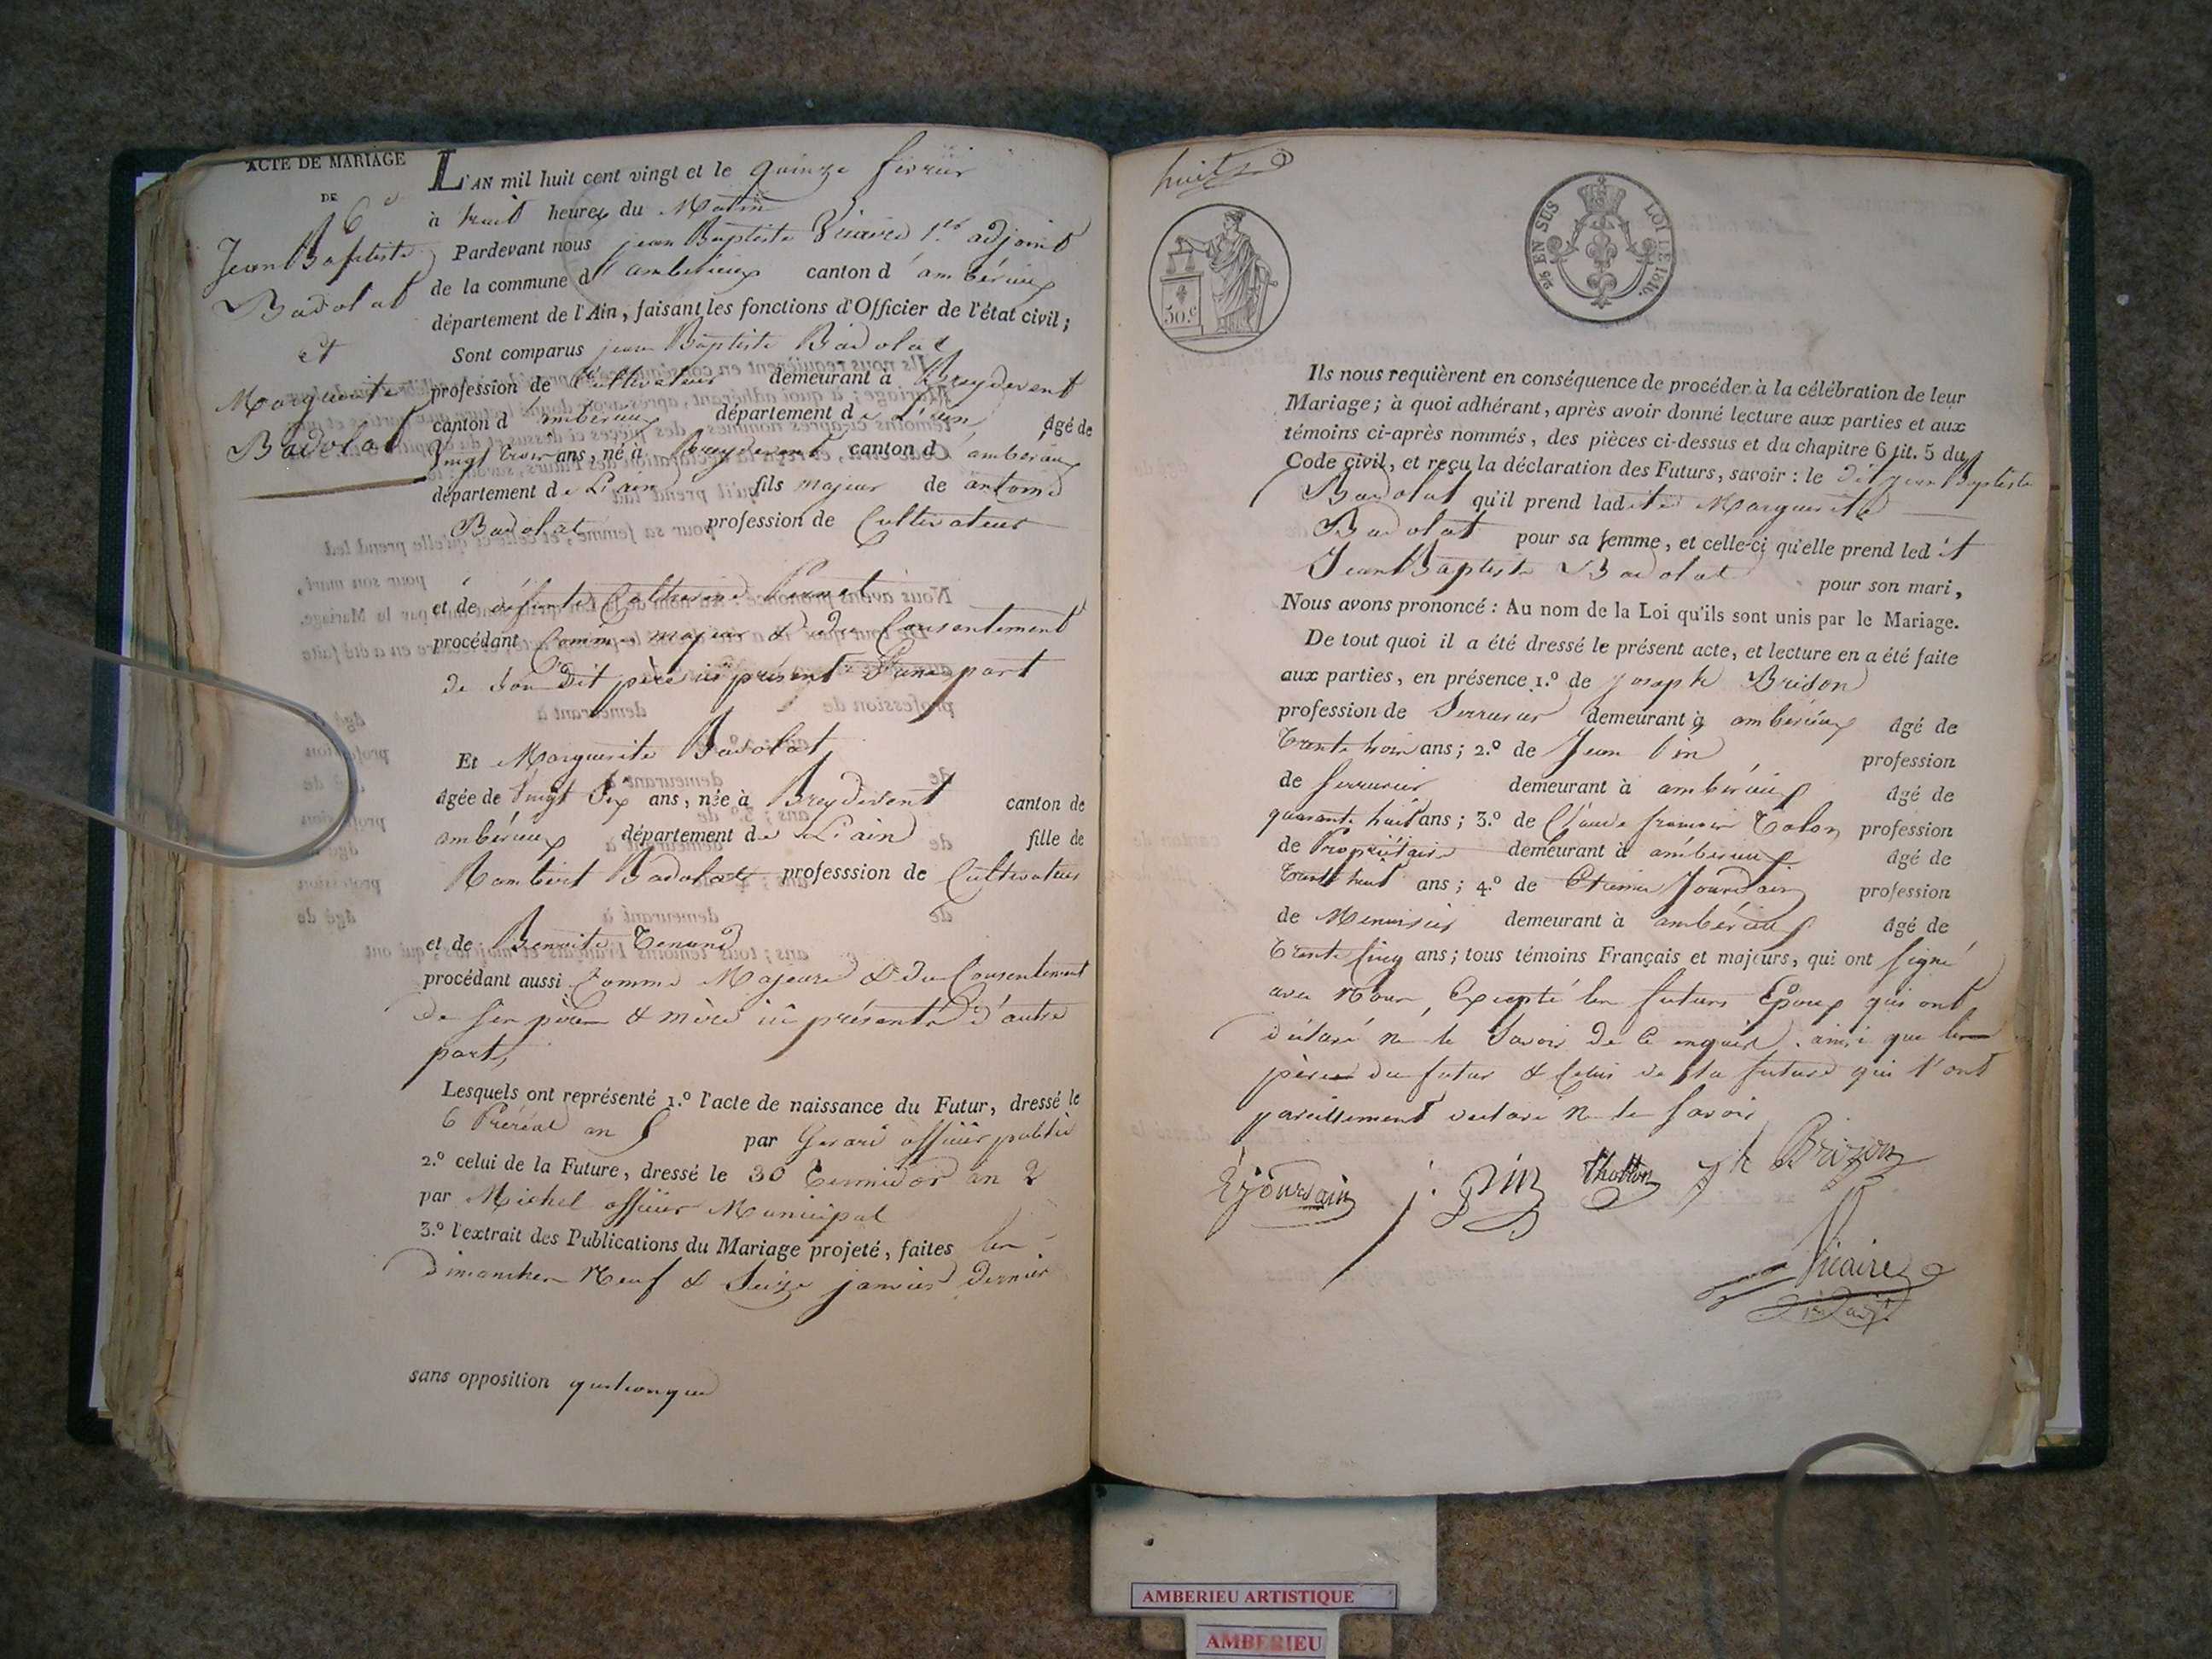 ACTE DE MARIAGE
DE
Jean Baptiste
Badolat
et
Marguerite
Badolat
L'AN mil huit cent vingt et le quinze fevrier
à huit heures du Matin
Pardevant nous jean Baptiste Vicaire 1er adjoint
de la commune d'amberieux canton d'amberieux
département de l'Ain, faisant les fonctions d'Officier de l'état civil;
Sont comparus jean Baptiste Badolat
profession de Cultivateur demeurant à Breydevent
canton d'amberieux département de L'ain âgé de
Vingt trois ans, né à Breydevent canton d'amberieux
département de L'ain fils majeur de antoine
Badolat profession de Cultivateur
et de défunte Catherine
procédant Comme majeur & du Consentement
de son dit père ici présent d'une part
Et Marguerite Badolat
âgée de Vingt Six ans, née à Breydevent canton de
ambérieux département de L'ain fille de
Rambert Badolat professsion de Cultivateur
et de Benoite Tenand
procédant aussi Comme Majeure & du Consentement
de ses père & mère ici présents d'autre
part,
Lesquels ont représenté 1.º l'acte de naissance du Futur, dressé le
6 Préréal an 5 par Gerard officier public
2.º celui de la Future, dressé le 30 Termidor an 2
par Michel officier Municipal
3.º l'extrait des Publications du Mariage projeté, faites les
dimanches Neuf & Seize janvier dernier
sans opposition quelconque
huit
30.c
25 EN SUS LOI DE 1816.
Ils nous requièrent en conséquence de procéder à la célébration de leur
Mariage; à quoi adhérant, après avoir donné lecture aux parties et aux
témoins ci-après nommés, des pièces ci-dessus et du chapitre 6 tit. 5 du
Code civil, et reçu la déclaration des Futurs, savoir : le dit jean Baptiste
Badolat qu'il prend ladite Marguerite
Badolat pour sa femme, et celle-ci qu'elle prend ledit
Jean Baptiste Badolat pour son mari,
Nous avons prononcé : Au nom de la Loi qu'ils sont unis par le Mariage.
De tout quoi il a été dressé le présent acte, et lecture en a été faite
aux parties, en présence 1.º de joseph Brison
profession de Serrurier demeurant à ambérieux âgé de
Trente trois ans; 2.º de Jean Pin profession
de Serrurier demeurant à ambérieux âgé de
quarante huit ans; 3.º de Claude francois Toton profession
de Propriétaire demeurant à ambérieux âgé de
Trente huit ans; 4.º de Etienne Jourdain profession
de Menuisier demeurant à ambérieux âgé de
Trente Cinq ans; tous témoins Français et majeurs, qui ont signé
avec Nous, Excepté les futurs Epoux qui ont
déclaré ne le Savoir de ce enquis. ainsi que le
père du futur & celui de la future qui l'ont
pareillement declaré ne le Savoir
E jourdain j. Pin thotton jh Brizon
Vicaire
1er adjt
AMBERIEU ARTISTIQUE
AMBERIEU